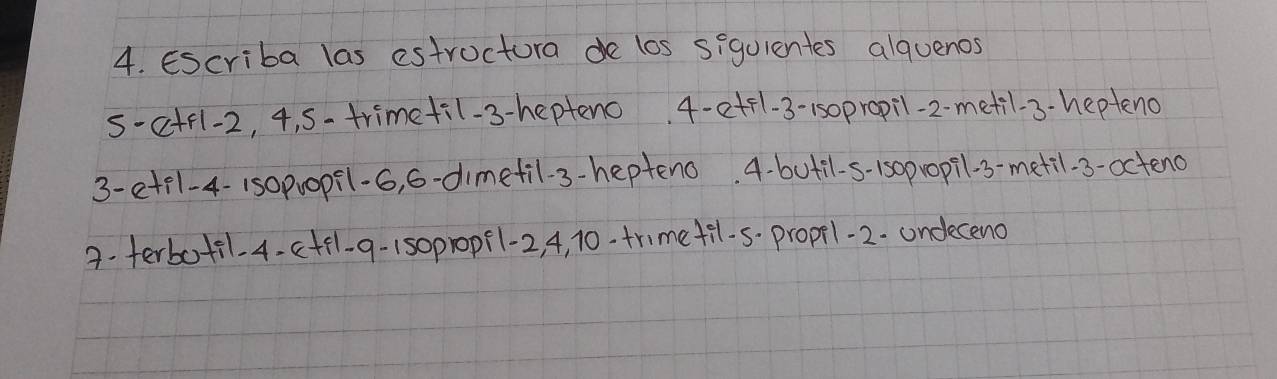 4. Escriba las estructura de los siguientes alquenos
5-etil-2, 4,5-trimetil-3-hepteno . 4-etil-3-isopropil-2-metil-3-hepteno
3-etil-4-isopropil-6,6-dimetil-3-hepteno . 4-butil-5-isopropil-3-metil-3-octeno
7-terbutil-4-etil-9-isopropil-2,4,10-trimetil-5-propil-2-undeceno